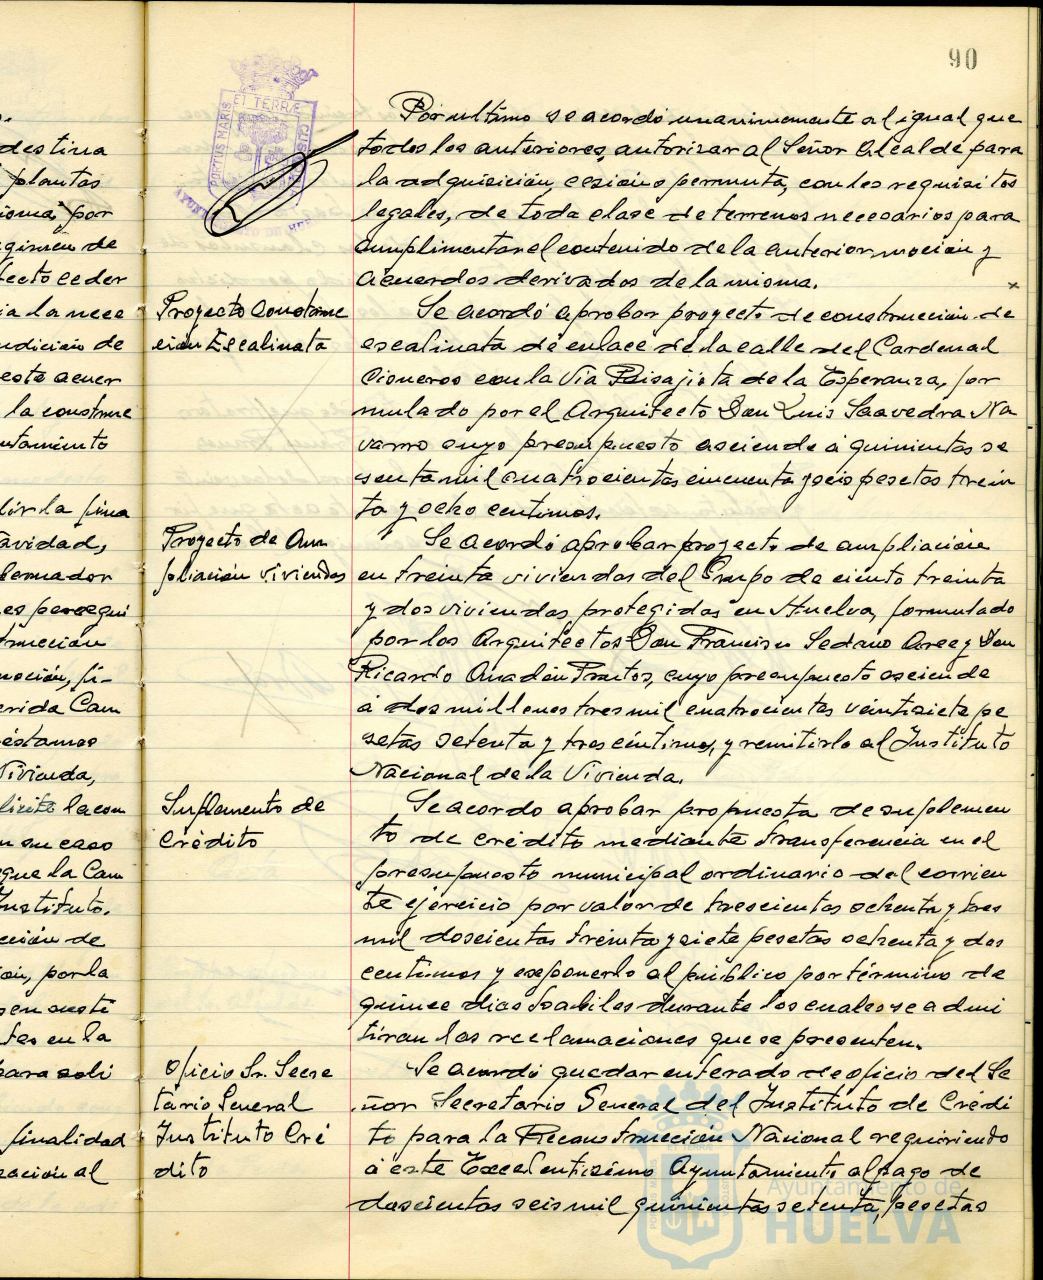 90
PORTUS MARIS
ET TERRÆ
.
destina
plantas
isma, por
gimen de
fecto ceder
ia la nece
ndición de
este acuer
la construc
ntamiento
lir la fina
avidad,
bernador
es persegui
trucción
moción, fi-
erida Cam
éstamos
Vivienda,
licita la con
n su caso
que la Cam
Instituto.
cción de
ion, por la
tes en la
para soli
finalidad
ración al
Por ultimo se acordó unanimemente al igual que
todos los anteriores, autorizar al Señor Alcalde para
la adquisición, cesión o permuta, con los requisitos
legales, de toda clase de terrenos necesarios para
cumplimentar el contenido de la anterior moción y
acuerdos derivados de la misma.
Proyecto construc
ción Escalinata
Se acordó aprobar proyecto de construcción de
escalinata de enlace de la calle del Cardenal
Cisneros con la Via Paisajista de la Esperanza, for
mulado por el Arquitecto Don Luis Saavedra Na
varro cuyo presupuesto asciende a quinientas se
senta mil cuatrocientas cincuenta y seis pesetas trein
ta y ocho centimos.
Proyecto de Am
pliación viviendas
Se acordó aprobar proyecto de ampliación
en treinta viviendas del Grupo de ciento treinta
y dos viviendas protegidas en Huelva, formulado
por los Arquitectos Don Francisco Sedano Arce y Don
Ricardo Anadón Frutos, cuyo presupuesto asciende
a dos millones tres mil cuatrocientas veintisiete pe
setas setenta y tres céntimos, y remitirlo al Instituto
Nacional de la Vivienda.
Suplemento de
Crédito
Se acordo aprobar propuesta de suplemen
to de crédito mediante transferencia en el
presupuesto municipal ordinario del corrien
te ejercicio por valor de trescientas ochenta y tres
mil doscientas treinta y siete pesetas ochenta y dos
centimos y exponerlo al público por término de
quince dias habiles durante los cuales se admi
tiran las reclamaciones que se presenten.
Oficio Sr. Secre
tario General
Instituto Cré
dito
Se acordó quedar enterado de oficio del Se
ñor Secretario General del Instituto de Crédi
to para la Reconstrucción Nacional requiriendo
a este Excelentisimo Ayuntamiento al pago de
doscientas seis mil quinientas setenta, pesetas
Ayuntamiento de
HUELVA